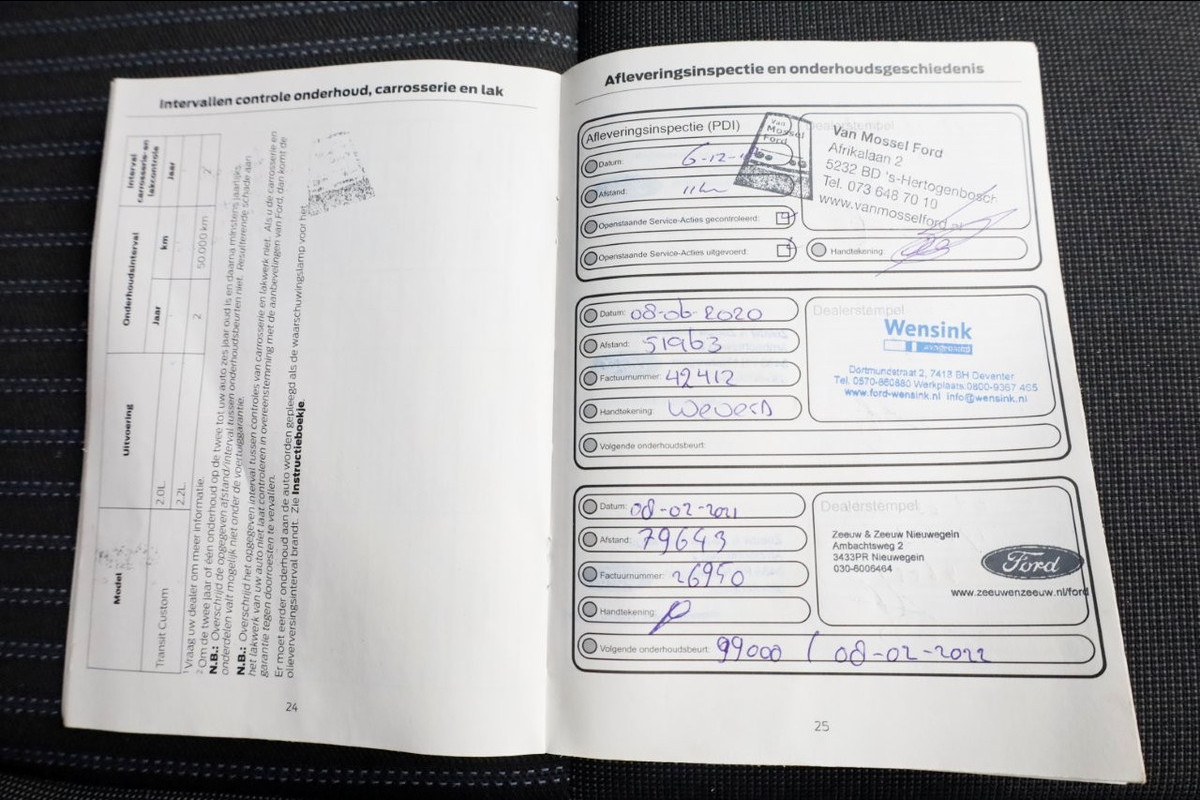 Intervallen controle onderhoud, carrosserie en lak
Model
Uitvoering
Onderhoudsinterval
Interval carrosserie- en lakcontrole
Jaar
km
Jaar
Transit Custom
2.0L
2.2L
2
50.000 km
¹ Vraag uw dealer om meer informatie.
² Om de twee jaar of één onderhoud op de twee tot uw auto zes jaar oud is en daarna minstens jaarlijks.
N.B.: Overschrijd de opgegeven afstand/interval tussen onderhoudsbeurten niet. Resulterende schade aan
onderdelen valt mogelijk niet onder de voertuiggarantie.
N.B.: Overschrijd het opgegeven interval tussen controles van carrosserie en lakwerk niet. Als u de carrosserie en
het lakwerk van uw auto niet laat controleren in overeenstemming met de aanbevelingen van Ford, dan komt de
garantie tegen doorroesten te vervallen.
Er moet eerder onderhoud aan de auto worden gepleegd als de waarschuwingslamp voor het
olieverversingsinterval brandt. Zie Instructieboekje.
24
Afleveringsinspectie en onderhoudsgeschiedenis
Afleveringsinspectie (PDI)
Datum: 6-12-
Afstand:
Openstaande Service-Acties gecontroleerd:
Openstaande Service-Acties uitgevoerd:
Van
Mossel
Ford
Dealerstempel
Van Mossel Ford
Afrikalaan 2
5232 BD 's-Hertogenbosch
Tel. 073 648 70 10
www.vanmosselford.nl
Handtekening:
Datum: 08-06-2020
Afstand: 51963
Factuurnummer: 42412
Handtekening: Wevers
Volgende onderhoudsbeurt:
Dealerstempel
Wensink
Dortmundstraat 2, 7418 BH Deventer
Tel. 0570-860880 Werkplaats:0800-9367 465
www.ford-wensink.nl info@wensink.nl
Datum: 08-02-2021
Afstand: 79643
Factuurnummer: 26950
Handtekening:
Volgende onderhoudsbeurt: 99000 / 08-02-2022
Dealerstempel
Zeeuw & Zeeuw Nieuwegein
Ambachtsweg 2
3433PR Nieuwegein
030-6006464
Ford
www.zeeuwenzeeuw.nl/ford
25